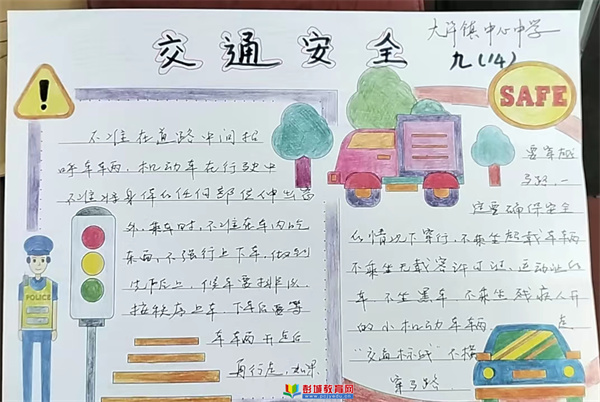 交通安全
大许镇中心中学
九(14)
SAFE
不准在道路中间招
呼车车辆,机动车在行驶中
不准将身体的任何部位伸出窗
外,乘车时,不准在车内吃
东西,不强行上下车,做到
先下后上,候车要排队,
按秩序上车,下车后要等
车车两开走后
再行走,如果
要穿越
马路,一
定要确保安全
的情况下穿行,不乘坐超载车辆
不乘坐无载客许可证、运动证的
车不坐黑车,不乘坐残疾人开
的小机动车辆 走
"交通标线"不横
穿马路.
POLICE
彭城教育网